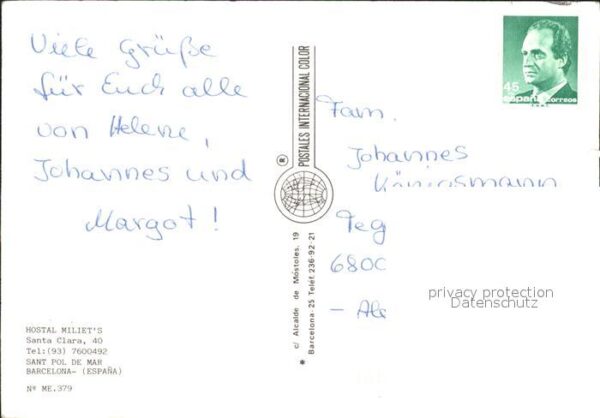 Viele Grüße
für Euch alle
von Helene,
Johannes und
Margot!
HOSTAL MILIET'S
Santa Clara, 40
Tel:(93) 7600492
SANT POL DE MAR
BARCELONA- (ESPAÑA)
Nº ME.379
POSTALES INTERNACIONAL COLOR
®
c/ Alcalde de Móstoles, 19
* Barcelona-25 Teléf. 236-92-21
45
España correos
Fam.
Johannes
Königsmann
Teg
6800
privacy protection
Datenschutz